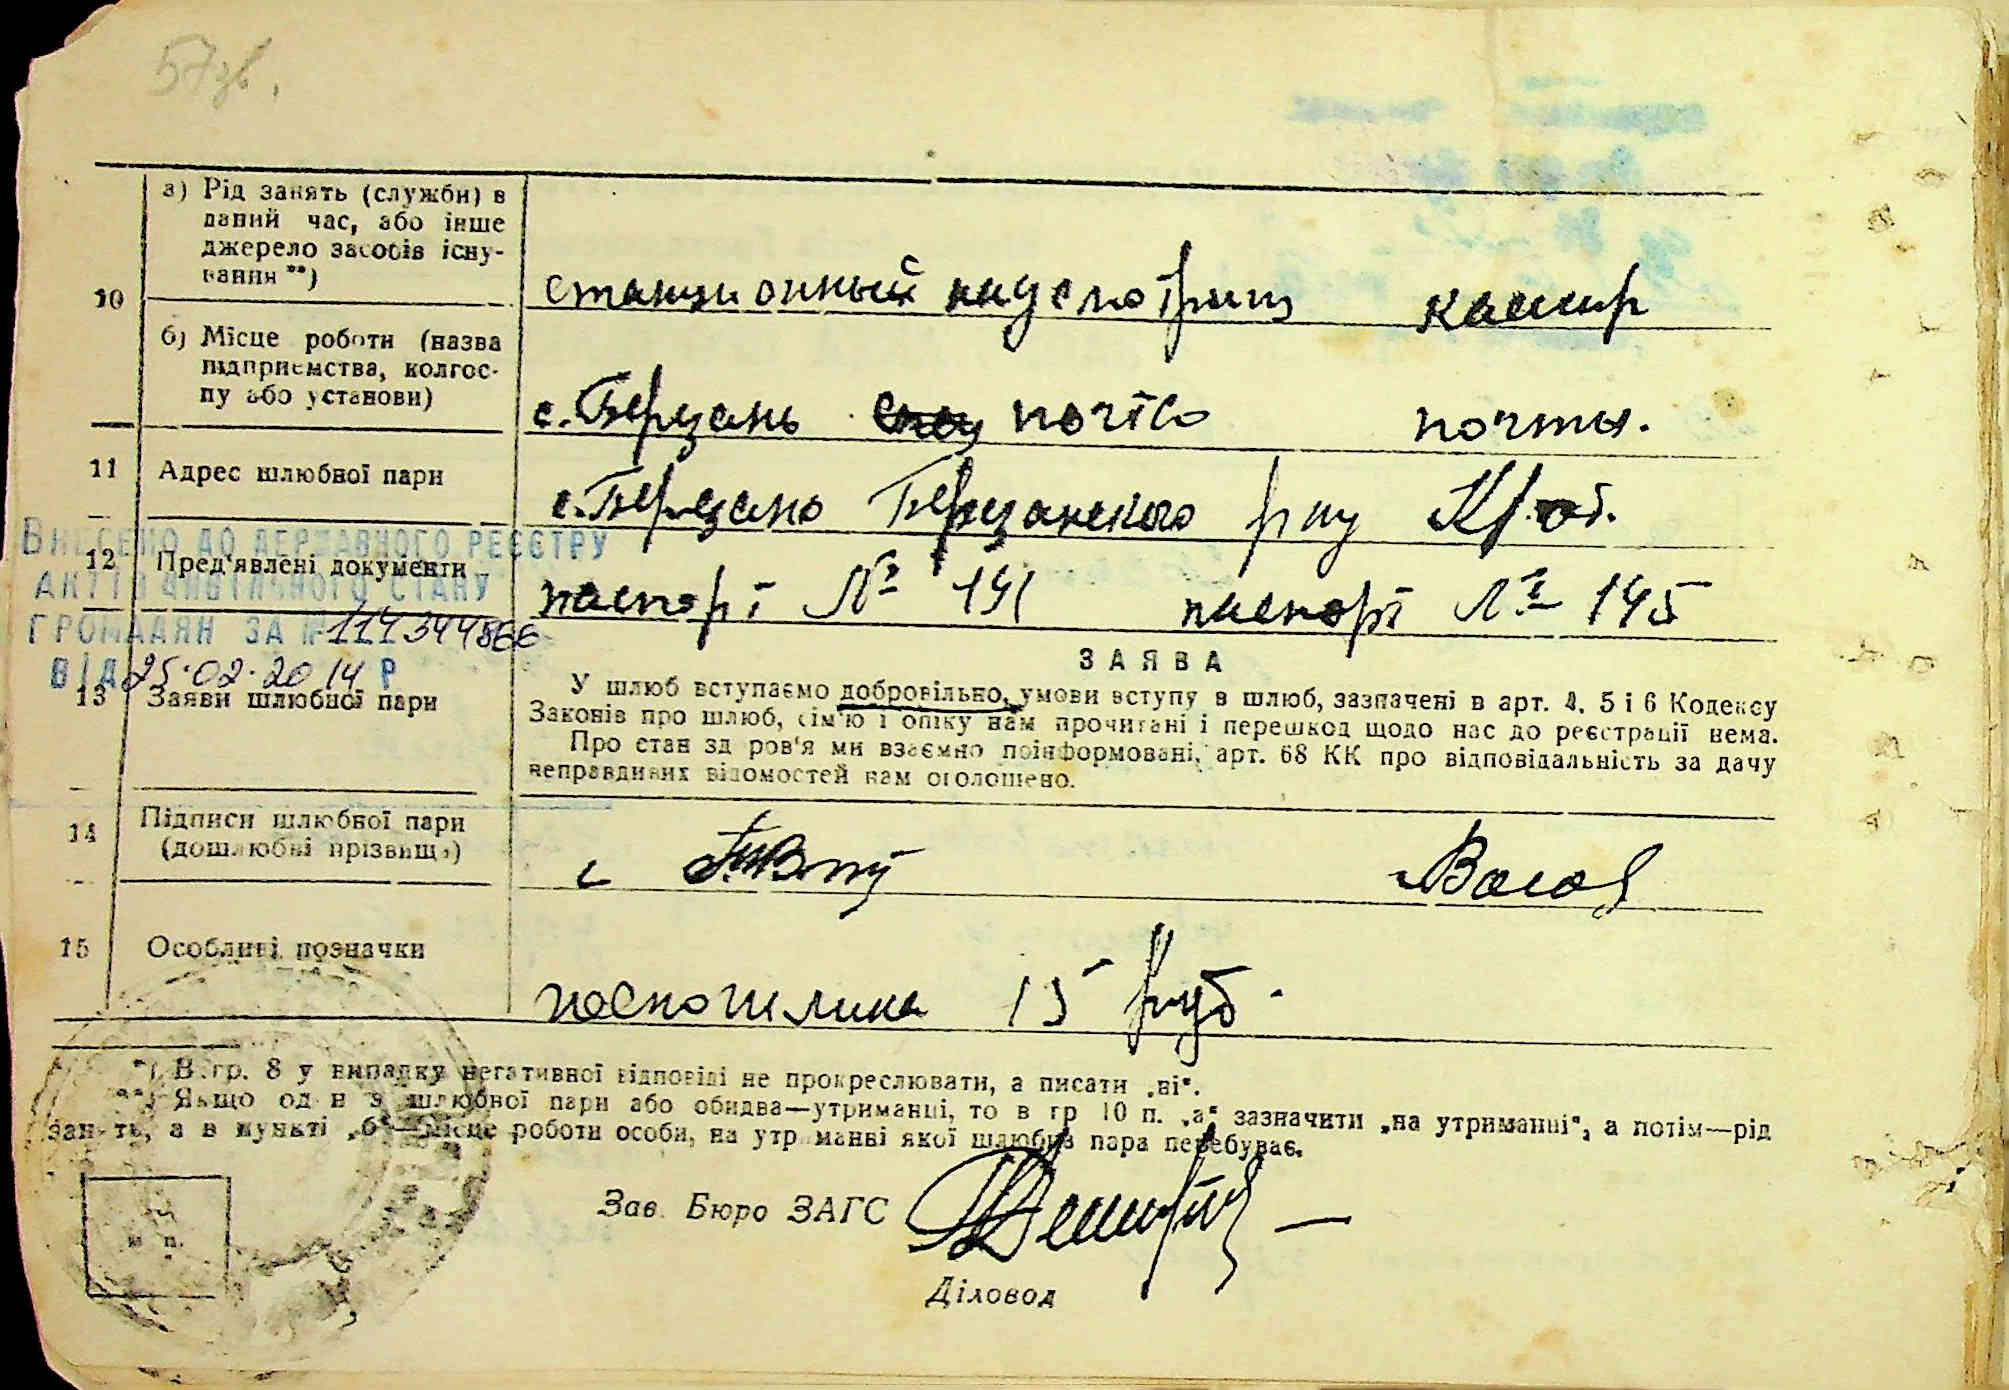 57зв.
10
а) Рід занять (служби) в
даний час, або інше
джерело засобів існу-
вання **)
станционный надсмотрщ кассир
б) Місце роботи (назва
підприємства, колгос-
пу або установи)
с. Березань почта почты.
11 Адрес шлюбної пари
с. Березань Березанского р-ну К. об.
12 Пред'явлені документи
паспорт № 141 паспорт № 145
ВНЕСЕНО ДО ДЕРЖАВНОГО РЕЄСТРУ
АКТІВ ЦИВІЛЬНОГО СТАНУ
ГРОМАДЯН ЗА № 114344866
ВІД 25.02.2014 Р
13 Заяви шлюбної пари
ЗАЯВА
У шлюб вступаємо добровільно, умови вступу в шлюб, зазначені в арт. 4, 5 і 6 Кодексу
Законів про шлюб, сім'ю і опіку нам прочитані і перешкод щодо нас до реєстрації нема.
Про стан здоров'я ми взаємно поінформовані, арт. 68 КК про відповідальність за дачу
неправдивих відомостей нам оголошено.
14 Підписи шлюбної пари
(дошлюбні прізвища)
15 Особливі позначки
15 руб.
*) В гр. 8 у випадку негативної відповіді не прокреслювати, а писати „ні“.
**) Якщо один з шлюбної пари або обидва—утриманці, то в гр 10 п. „а“ зазначити „на утриманні“, а потім—рід
занять, а в пункті „б“—місце роботи особи, на утриманні якої шлюбна пара перебуває.
м п.
Зав. Бюро ЗАГС
Діловод